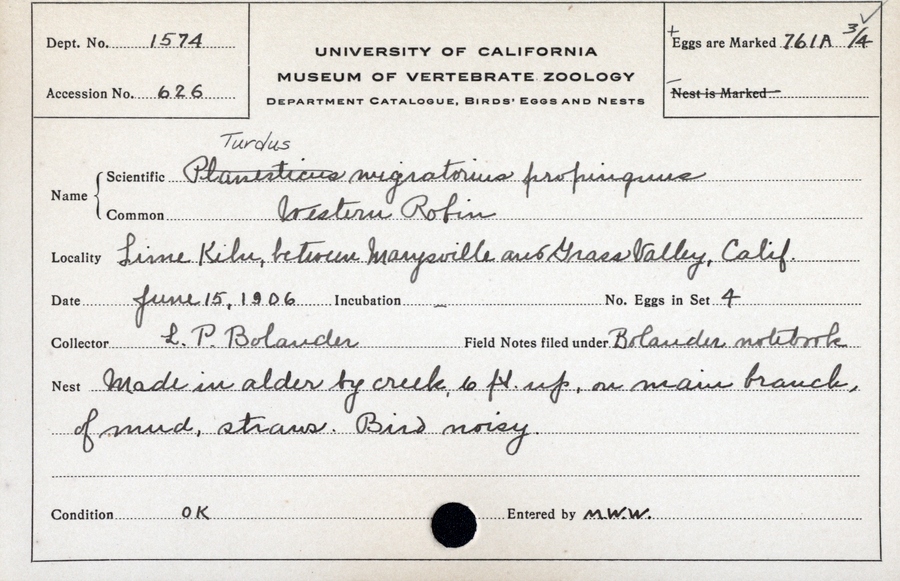 Dept. No. 1574
Accession No. 626
UNIVERSITY OF CALIFORNIA
MUSEUM OF VERTEBRATE ZOOLOGY
DEPARTMENT CATALOGUE, BIRDS' EGGS AND NESTS
+ Eggs are Marked 761A 3/4 ✓
Nest is Marked
Turdus
Name { Scientific Planesticus migratorius propinquus
Common Western Robin
Locality Lime Kiln, between Marysville and Grass Valley, Calif.
Date June 15, 1906 Incubation — No. Eggs in Set 4
Collector L. P. Bolander Field Notes filed under Bolander notebook
Nest Made in alder by creek, 6 ft. up, on main branch,
of mud, straws. Bird noisy.
Condition OK Entered by M.W.W.